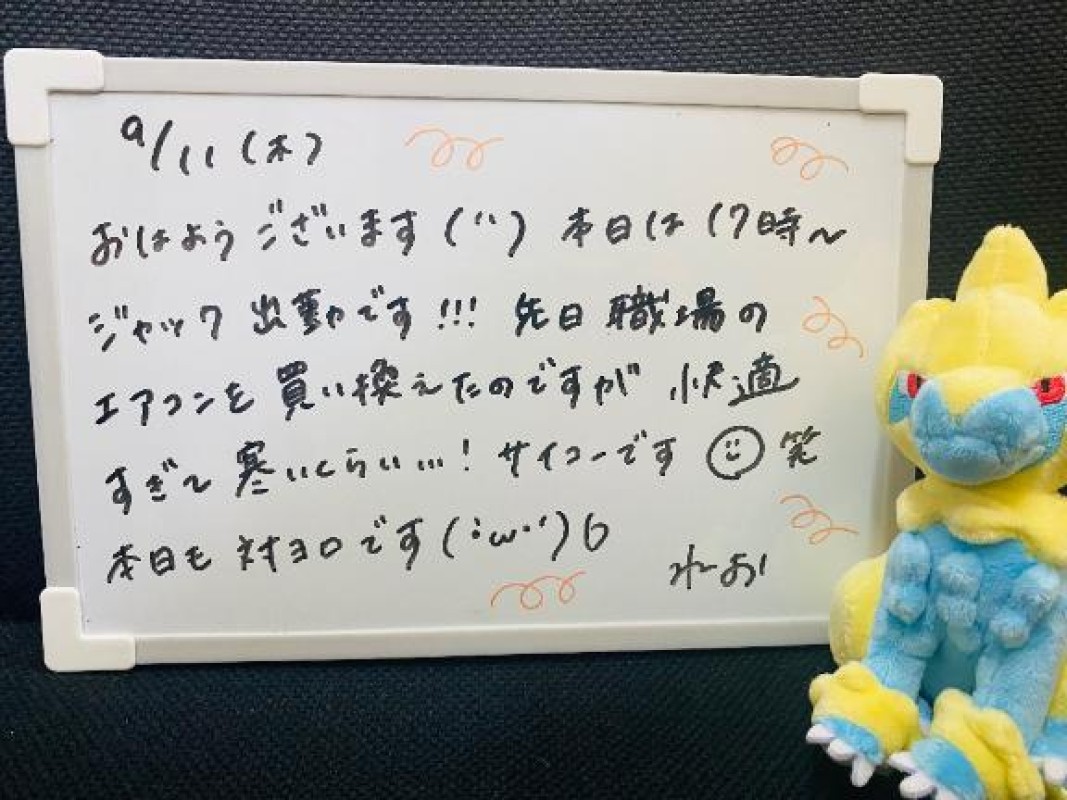 9/11(木)
おはようございます(¨) 本日は17時~
ジャック出勤です!!! 先日職場の
エアコンを買い換えたのですが 快適
すぎて寒いくらい…!サイコーです☺笑
本日も対ヨロです(・ω・´)6
れーお